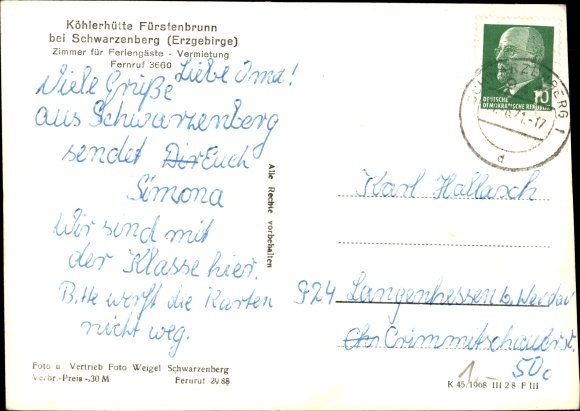 Köhlerhütte Fürstenbrunn
bei Schwarzenberg (Erzgebirge)
Zimmer für Feriengäste - Vermietung
Fernruf 3660
Liebe Oma!
Viele Grüße
aus Schwarzenberg
sendet Dir Euch
Simona
Wir sind mit
der Klasse hier.
Bitte werft die Karten
nicht weg.
Foto u. Vertrieb Foto Weigel Schwarzenberg
Verbr.-Preis -,30 M Fernruf 2988
Alle Rechte vorbehalten
10
DEUTSCHE
DEMOKRATISCHE REPUBLIK
-17
d
Karl Hallasch
924 Langenhessen b. Werdau
Crimmitschauer st.
50c
1,-
K 45/1068 III 2 8 F III